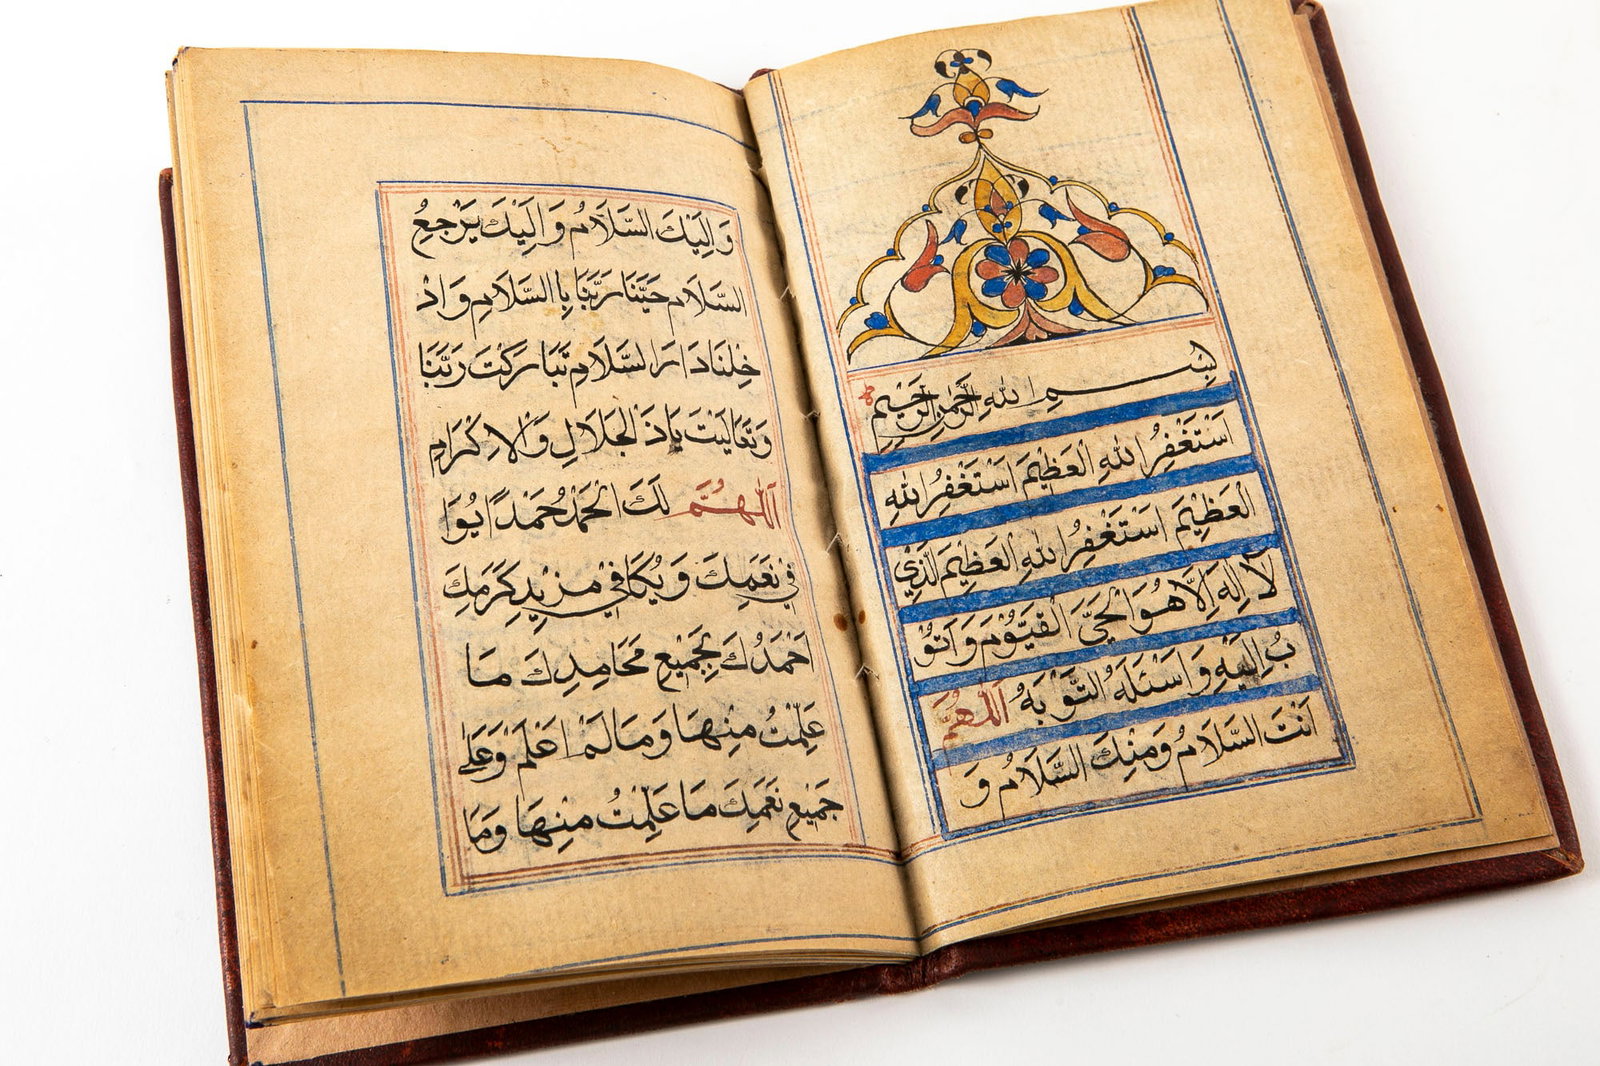 بِسْمِ اللهِ الرَّحْمٰنِ الرَّحِيْمِ
اَسْتَغْفِرُ اللهَ الْعَظِيْمَ اَسْتَغْفِرُ اللهَ
الْعَظِيْمَ اَسْتَغْفِرُ اللهَ الْعَظِيْمَ الَّذِيْ
لَا اِلٰهَ اِلَّا هُوَ الْحَيَّ الْقَيُّوْمَ وَ اَتُوْ
بُ اِلَيْهِ وَ اَسْئَلُهُ التَّوْبَهُ اَللّٰهُمَّ
اَنْتَ السَّلَامُ وَمِنْكَ السَّلَامُ وَ
وَ اِلَيْكَ السَّلَامُ وَ اِلَيْكَ يَرْجِعُ
السَّلَامِ حَيِّنَا رَبَّنَا بِا السَّلَامِ وَ ادْ
خِلْنَا دَارَ السَّلَامِ تَبَارَكْتَ رَبَّنَا
وَتَعَالَيْتَ يَاذَ الْجَلَالِ وَالْاِكْرَامِ
اَللّٰهُمَّ لَكَ الْحَمْدُ حَمْدًا يُوَا
فِيْ نِعَمِكَ وَ يُكَافِيْ مَزِيْدِ كَرَمِكَ
اَحْمَدُكَ بِجَمِيْعِ مَحَامِدِكَ مَا
عَلِمْتُ مِنْهَا وَمَا لَمْ اَعْلَمْ وَعَلٰى
جَمِيْعِ نِعَمِكَ مَا عَلِمْتُ مِنْهَا وَمَا